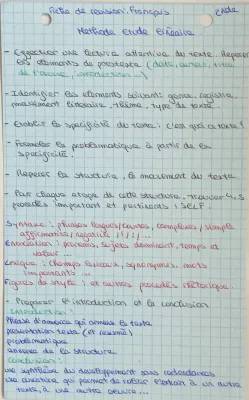 Fiche de révision Français
Méthode Etude linéaire
- Effectuer une lecture attentive du texte. Repérer
les éléments de paratexte (date, auteur, titre
de l'œuvre, introduction...)
- Identifier les éléments suivant: genre, registre,
mouvement littéraire, thème, type de texte
- Etablir la spécificité du texte: c'est quoi ce texte?
- Formuler la problématique à partir de la
spécificité.
- Repérer la structure, le mouvement du texte
- Pour chaque étape de cette structure, trouver 4,5
procédés important et pertinents
Syntaxe: phrases longues/courtes, complexes/simples
affirmative/négative
Enonciation: pronoms, sujets dominant, temps et
valeur...
Lexique: champs lexicaux, synonymes, mots
importants...
Figures de style: et autres procédés rhétorique.
- Préparer l'introduction et la conclusion
introduction:
Phrase d'amorce qui amène le texte
présentation texte (et résumé)
problématique
annonce de la structure
conclusion:
une synthèse du développement sans redondances
une ouverture qui permet de relier l'extrait à un autre
texte, à une autre œuvre...